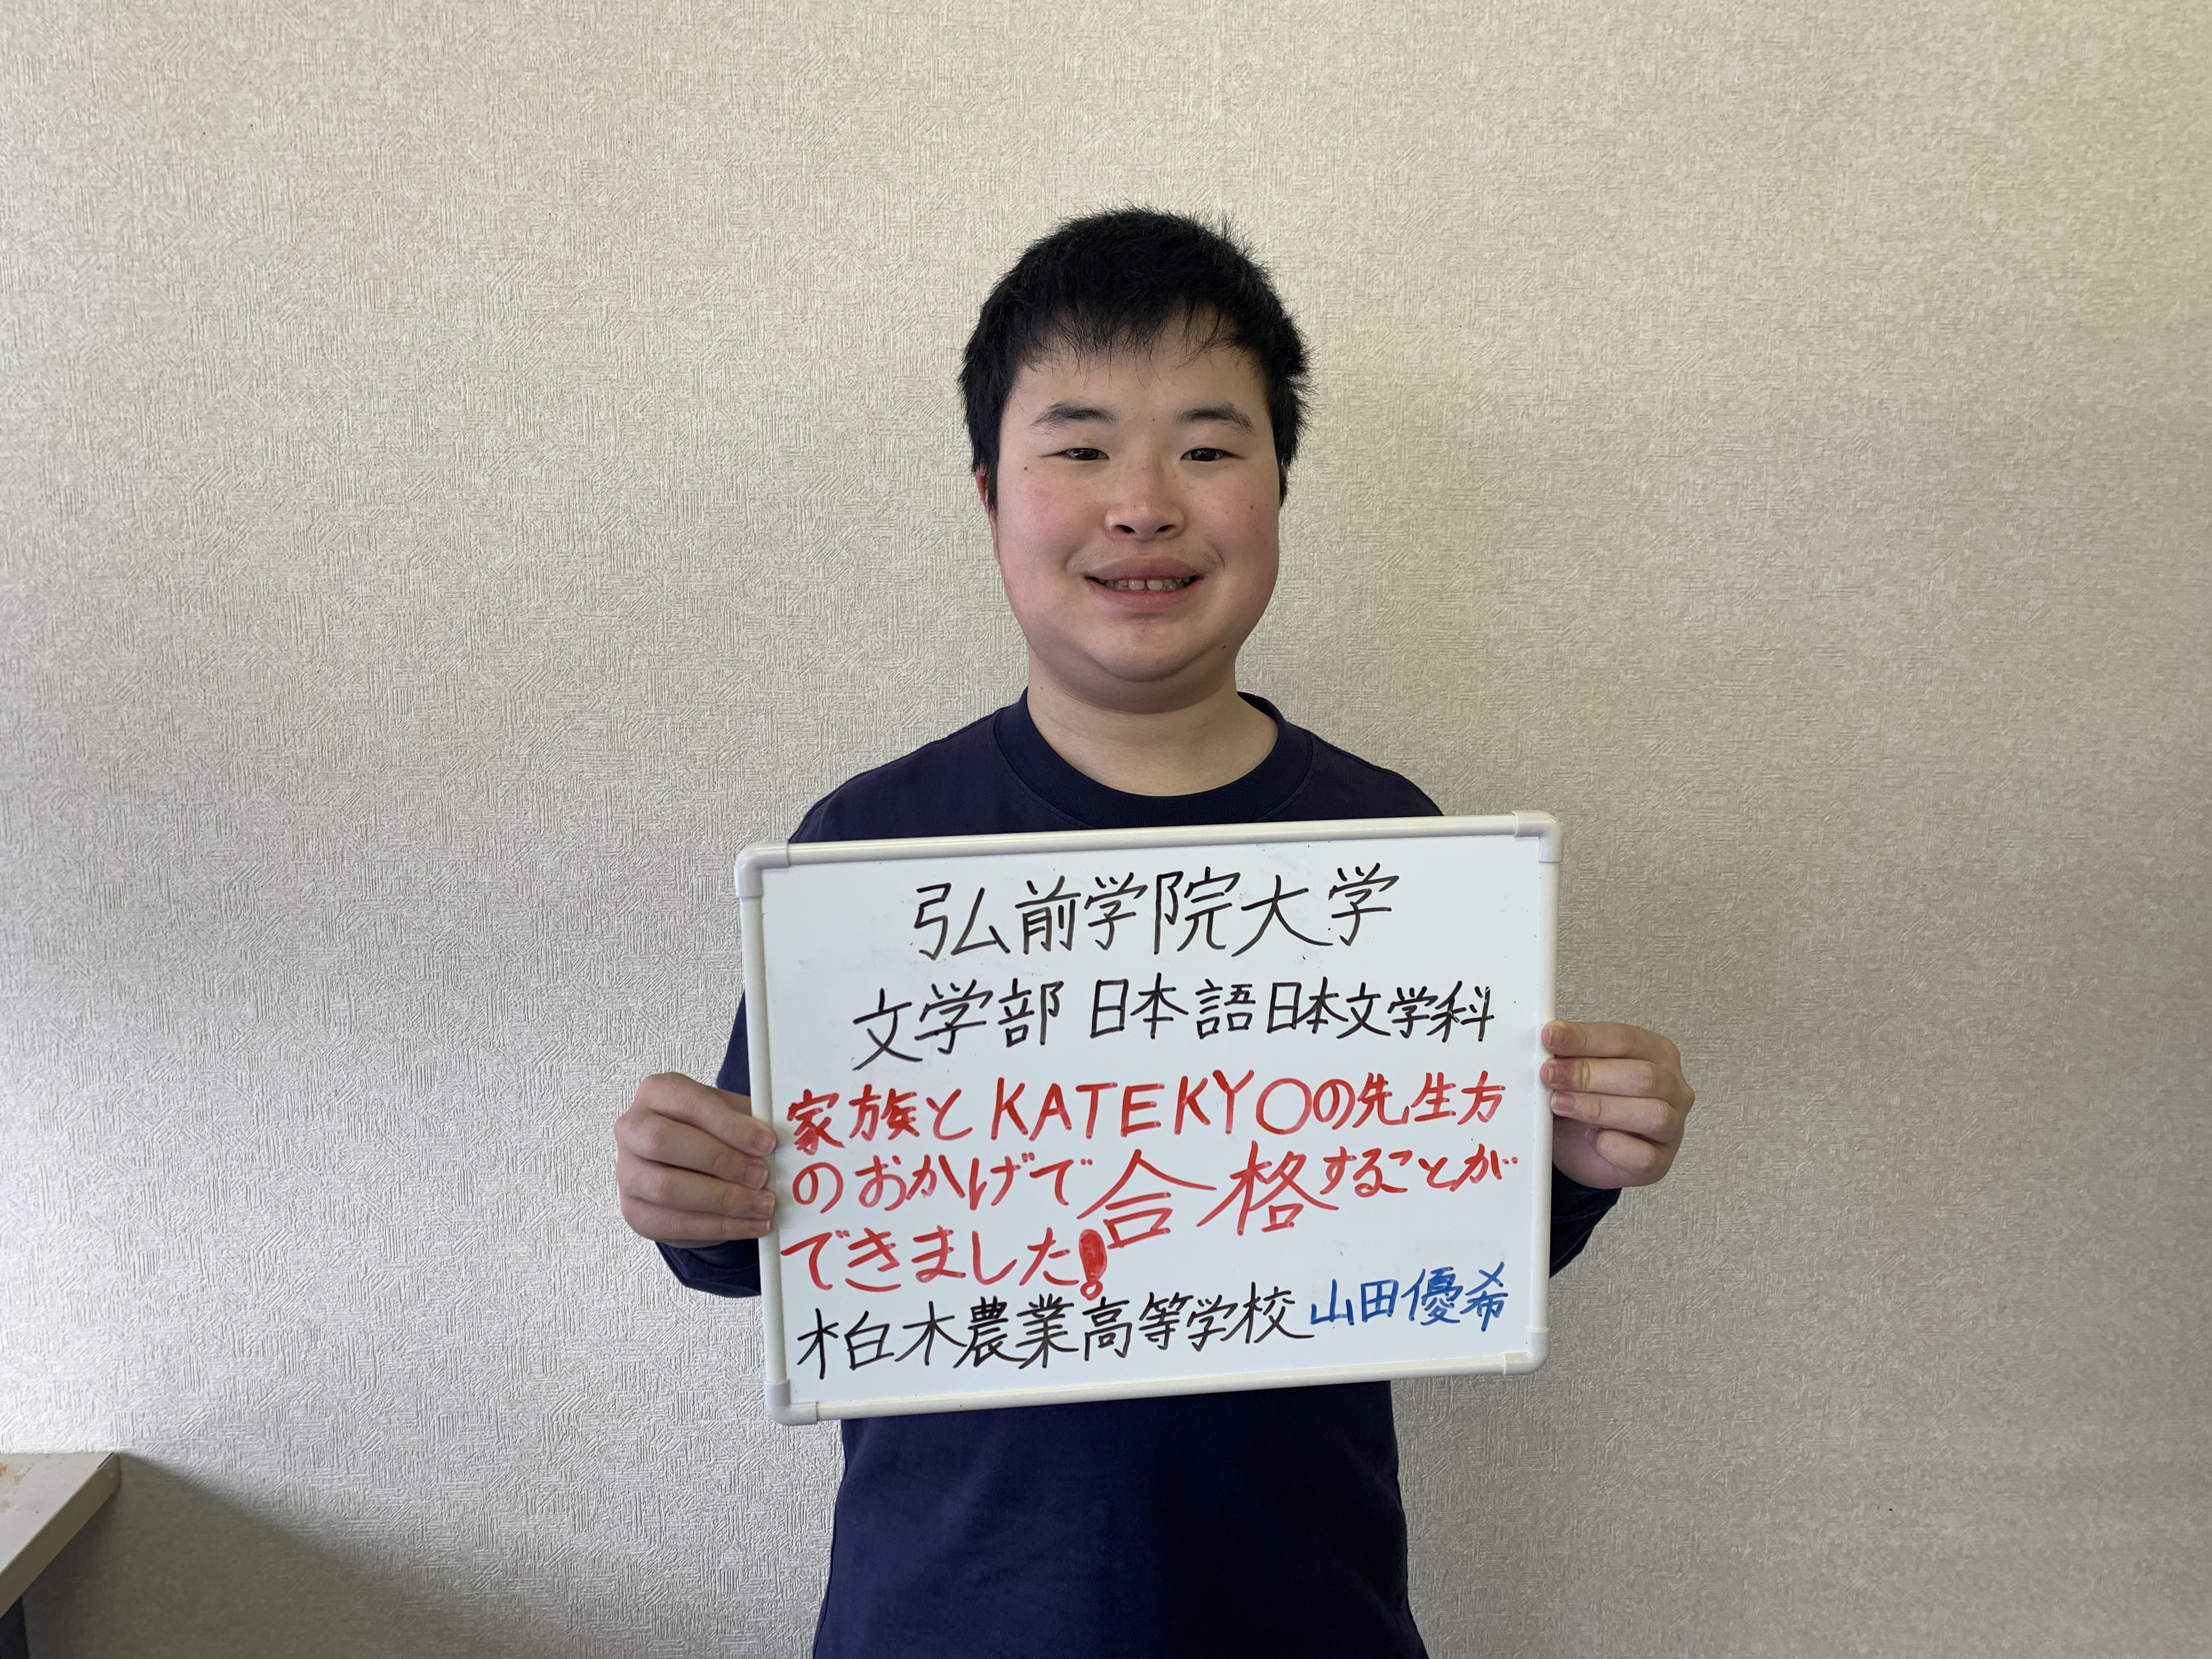 弘前学院大学
文学部 日本語日本文学科
家族とKATEKYOの先生方
のおかげで合格することが
できました!
柏木農業高等学校 山田優希